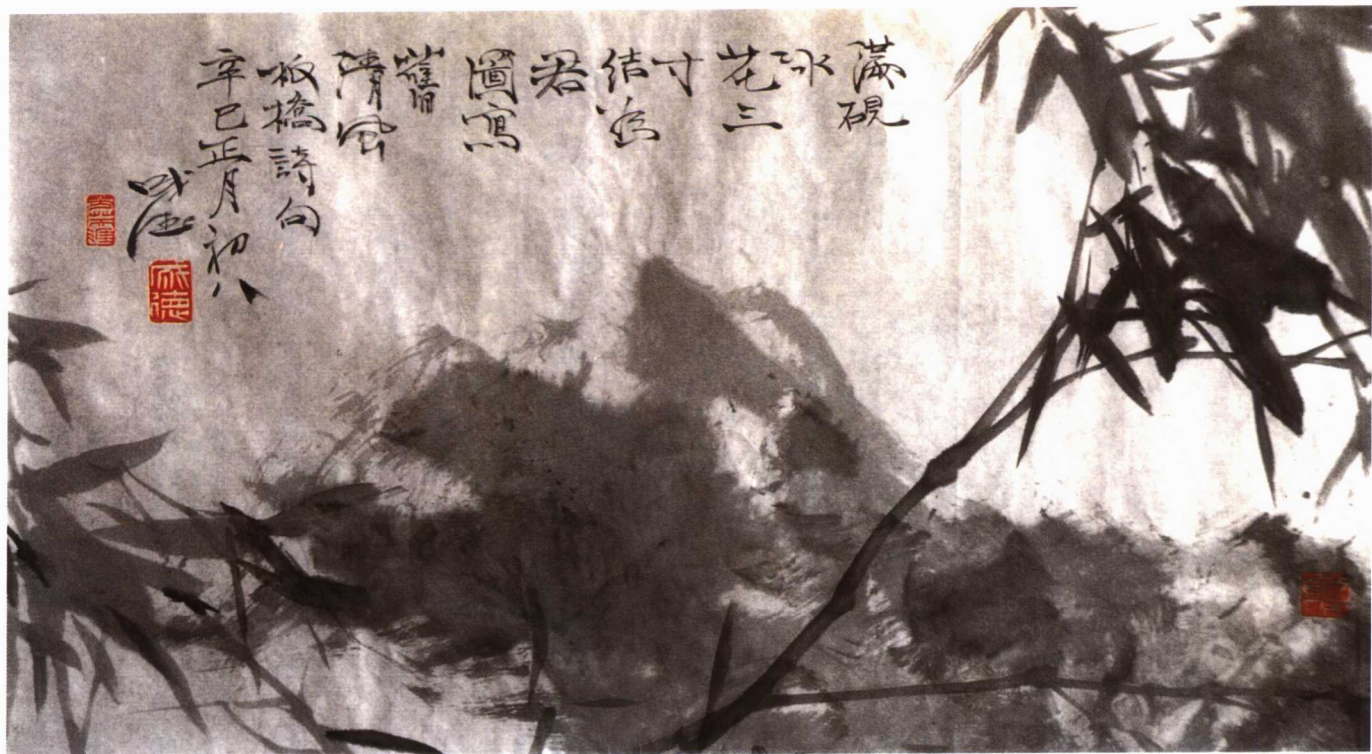 滿硯
冰
花三
寸
結為
君
圖寫
舊
清風
板橋詩句
辛巳正月初八
成德
成德